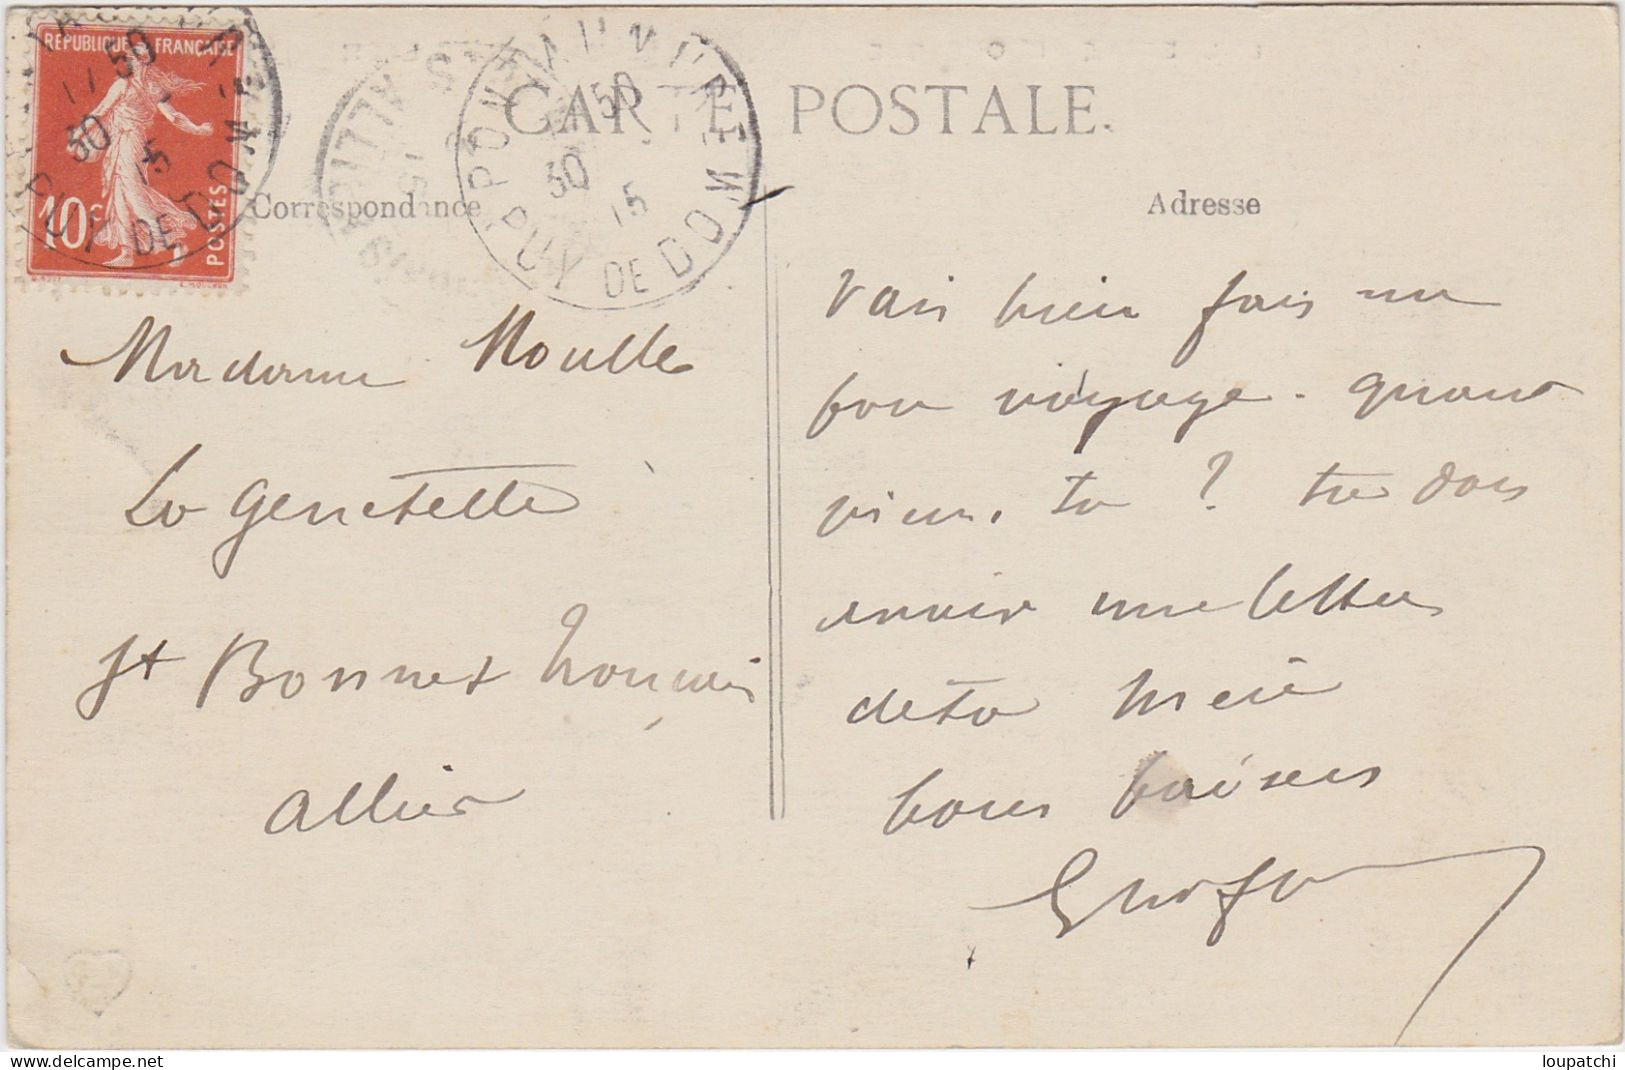 RÉPUBLIQUE FRANÇAISE
10c
POSTES
17 50
30
15
PUY DE DOME
CARTE POSTALE.
Correspondance
Adresse
PUY DE DOME
50
30
15
Madame Moulle
La Genetelle
St Bonnet Tronçais
Allier
Vais bien fais un
bon voyage. quand
viens tu ? tu dois
avoir une lettre
de ta
bons baisers
loupatchi